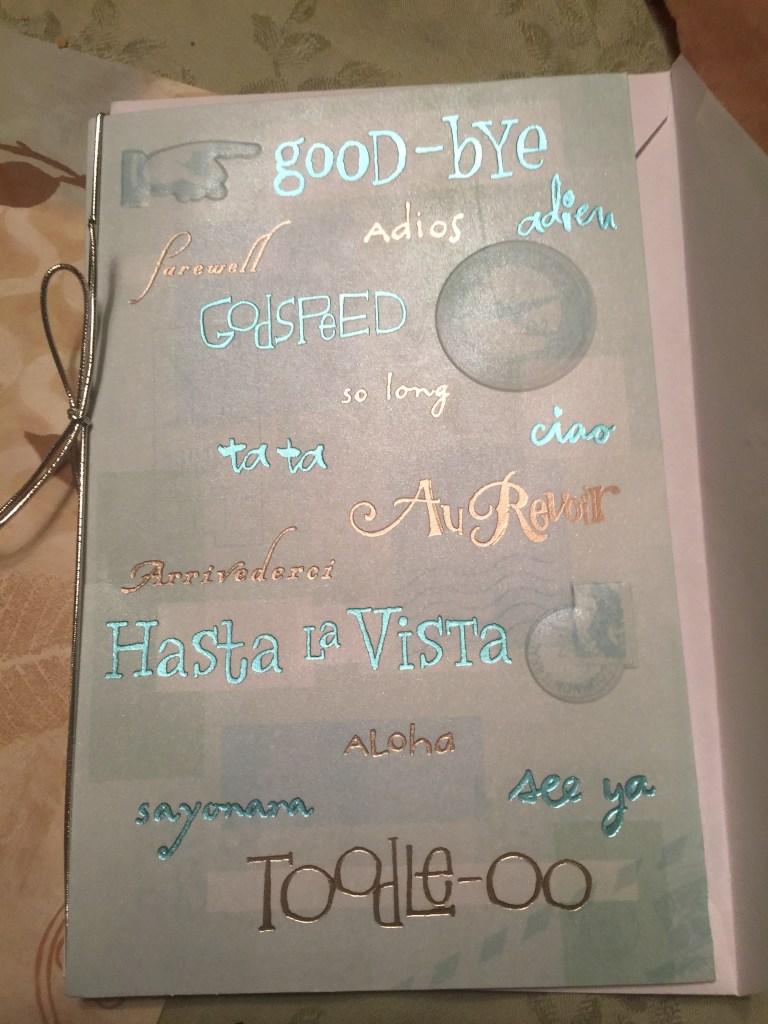 gooD-bYe
Adios
adieu
farewell
GodSPeED
so long
ciao
ta ta
Au Revoir
Arrivederci
Hasta LA VisTA
ALoha
see ya
sayonara
TOodLe-OO